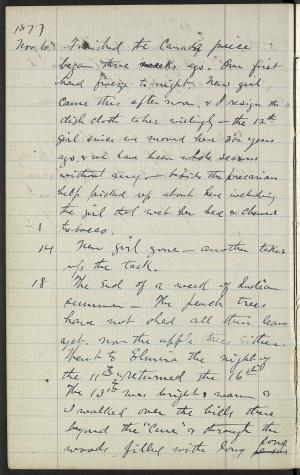 1877
Nov. 6. Finished the Canada piece
began three weeks ago. Our first
hard freeze to-night. New girl
came this afternoon, & I resign the
dish cloth to her willingly — the 12th
girl since we moved here 3½ years
ago, & we have been whole seasons
without any — beside the precarious
help picked up about here including
the girl that wet her bed & chewed
tobacco.
14 New girl gone — another takes
up the task.
18 The end of a week of Indian
summer — The peach trees
have not shed all their leaves
yet. nor the apple trees either.
Went to Elmira the night of
the 11th & returned the 16th
The 13th was bright & warm &
I walked over the hills there
beyond the "Cure" & through the
woods, filled with long